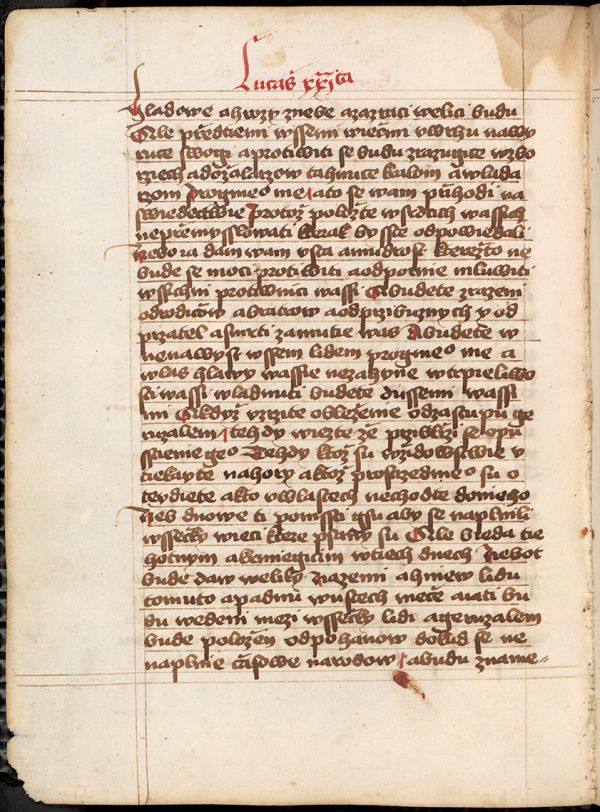 Lucáš xxjta
hladowe a hrozy znebe azazraci welici budu
Ale předtiemi wssemi wiecmi vwrhu nawy
ruce swogi aprotiwiti se budu zrazugice wzbo
rziech adožalarzow tahnuce kalom awlada
rzom progmeo me a to se wam přihodi na
swiedectwie Protož položte wsrdcich wassich
nepřemysslowati kterak by sste odpowiedali
Nebo ia dam wam vsta amudrost kterežto ne
bude se moci protiwiti aodpornie mluwiti
wssichni protiwnici wassi A budete zrazeni
odrodicow abratrow aodprzibuznych y od
przatel asmrti zamutie was A budete w
nenawyst wssem lidem progmeo me a
wlas hlawy wassie nezahyne wtrpeliwo
sti wassi wladnuti budete dussemi wassi
mi A kdyz vzrzite obleženie odzastupuow ge
ruzalem tehdy wiezte že přibliži se opu
sstienie geo Tehdy ktož su wzidowstwie v
tiekayte nahory a ktož prostrzedmeo su o
teydiete a kto vwlastech nechodte doniego
Neb dnowe ti pomsti gsu aby se naplnili
wssecky wieci ktere psany su Ale bieda tie
hotnym akrmiegicim wtiech dnech Nebot
bude daw weliky nazemi ahniew lidu
tomuto a padnu wustech mece a iati bu
du wedeni mezi wssecky lidi a geruzalem
bude položen odpohanow dokud se ne
naplnie časowe narodow a budu zname=